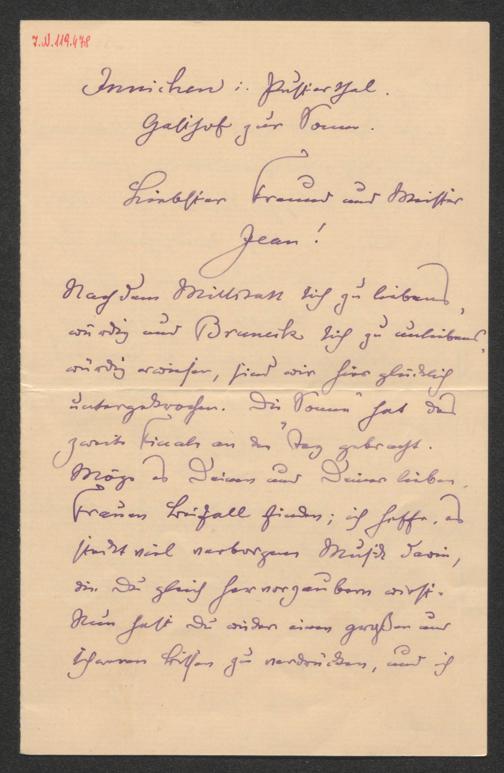 I.N. 119.478
Innichen i. Pusterthal.
Gasthof zur Sonne.
Liebster Freund und Meister
Jean!
Nachdem Millstatt sich zu liebens,
würdig und Bruneck sich zu unliebens,
würdig erwiesen, sind wir hier glücklich
untergekrochen. Die Sonne" hat das
zweite Finale an den "Tag gebracht.
Möge es Deinen und Deiner lieben
Frauen Beifall finden; ich hoffe, es
steckt viel verborgene Musik darin,
die Du gleich hervorzaubern wirst.
Nun hast Du wieder einen großen und
schweren Bissen zu verdrücken, und ich